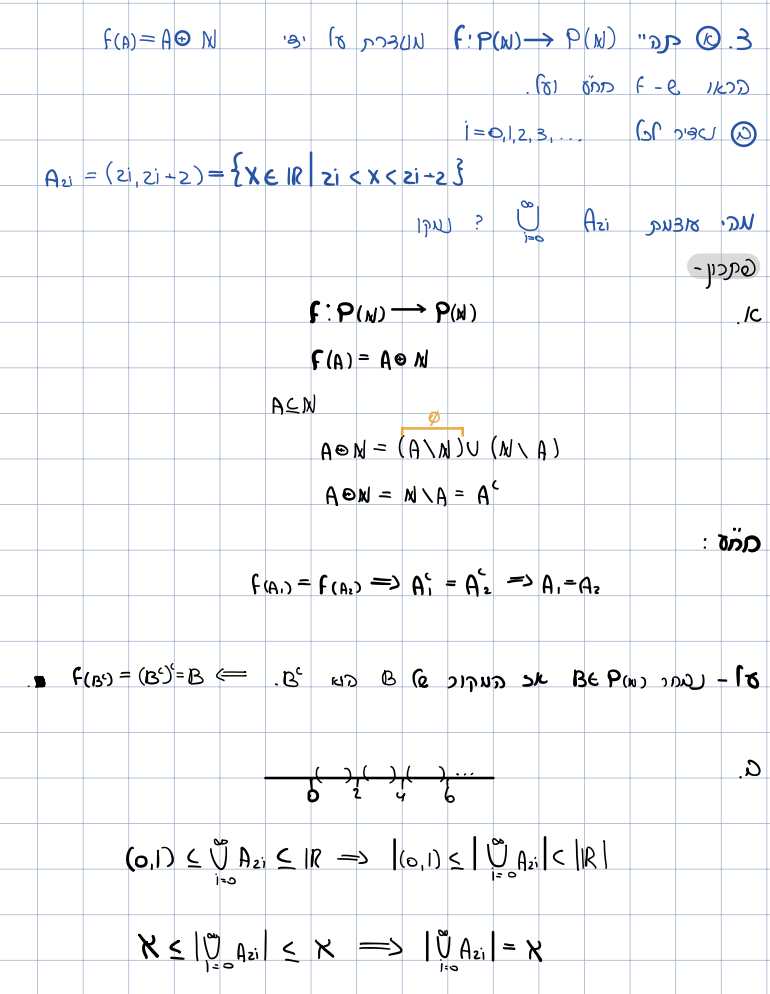 3. א תהי f: P(ℕ) → P(ℕ) מוגדרת על ידי f(A) = A ⊕ ℕ
הראו ש-f חח״ע ועל.
ב נגדיר לכל i=0,1,2,3,...
A₂ᵢ = (2i, 2i+2) = {x ∈ ℝ | 2i < x < 2i+2}
מהי עוצמת ⋃_{i=0}^{∞} A₂ᵢ ? נמקו
פתרון-
א.
f: P(ℕ) → P(ℕ)
f(A) = A ⊕ ℕ
A ⊆ ℕ
∅
A ⊕ ℕ = (A \ ℕ) ∪ (ℕ \ A)
A ⊕ ℕ = ℕ \ A = Aᶜ
חח״ע :
f(A₁) = f(A₂) ⟹ A₁ᶜ = A₂ᶜ ⟹ A₁ = A₂
על - נבחר B ∈ P(ℕ) אז המקור של B הוא Bᶜ. ⟸ f(Bᶜ) = (Bᶜ)ᶜ = B ■.
ב.
( ) ( ) ( ) ...
0 2 4 6
(0,1) ≤ ⋃_{i=0}^{∞} A₂ᵢ ≤ ℝ ⟹ |(0,1) ≤ |⋃_{i=0}^{∞} A₂ᵢ| < |ℝ|
א ≤ |⋃_{i=0}^{∞} A₂ᵢ| ≤ א ⟹ |⋃_{i=0}^{∞} A₂ᵢ| = א